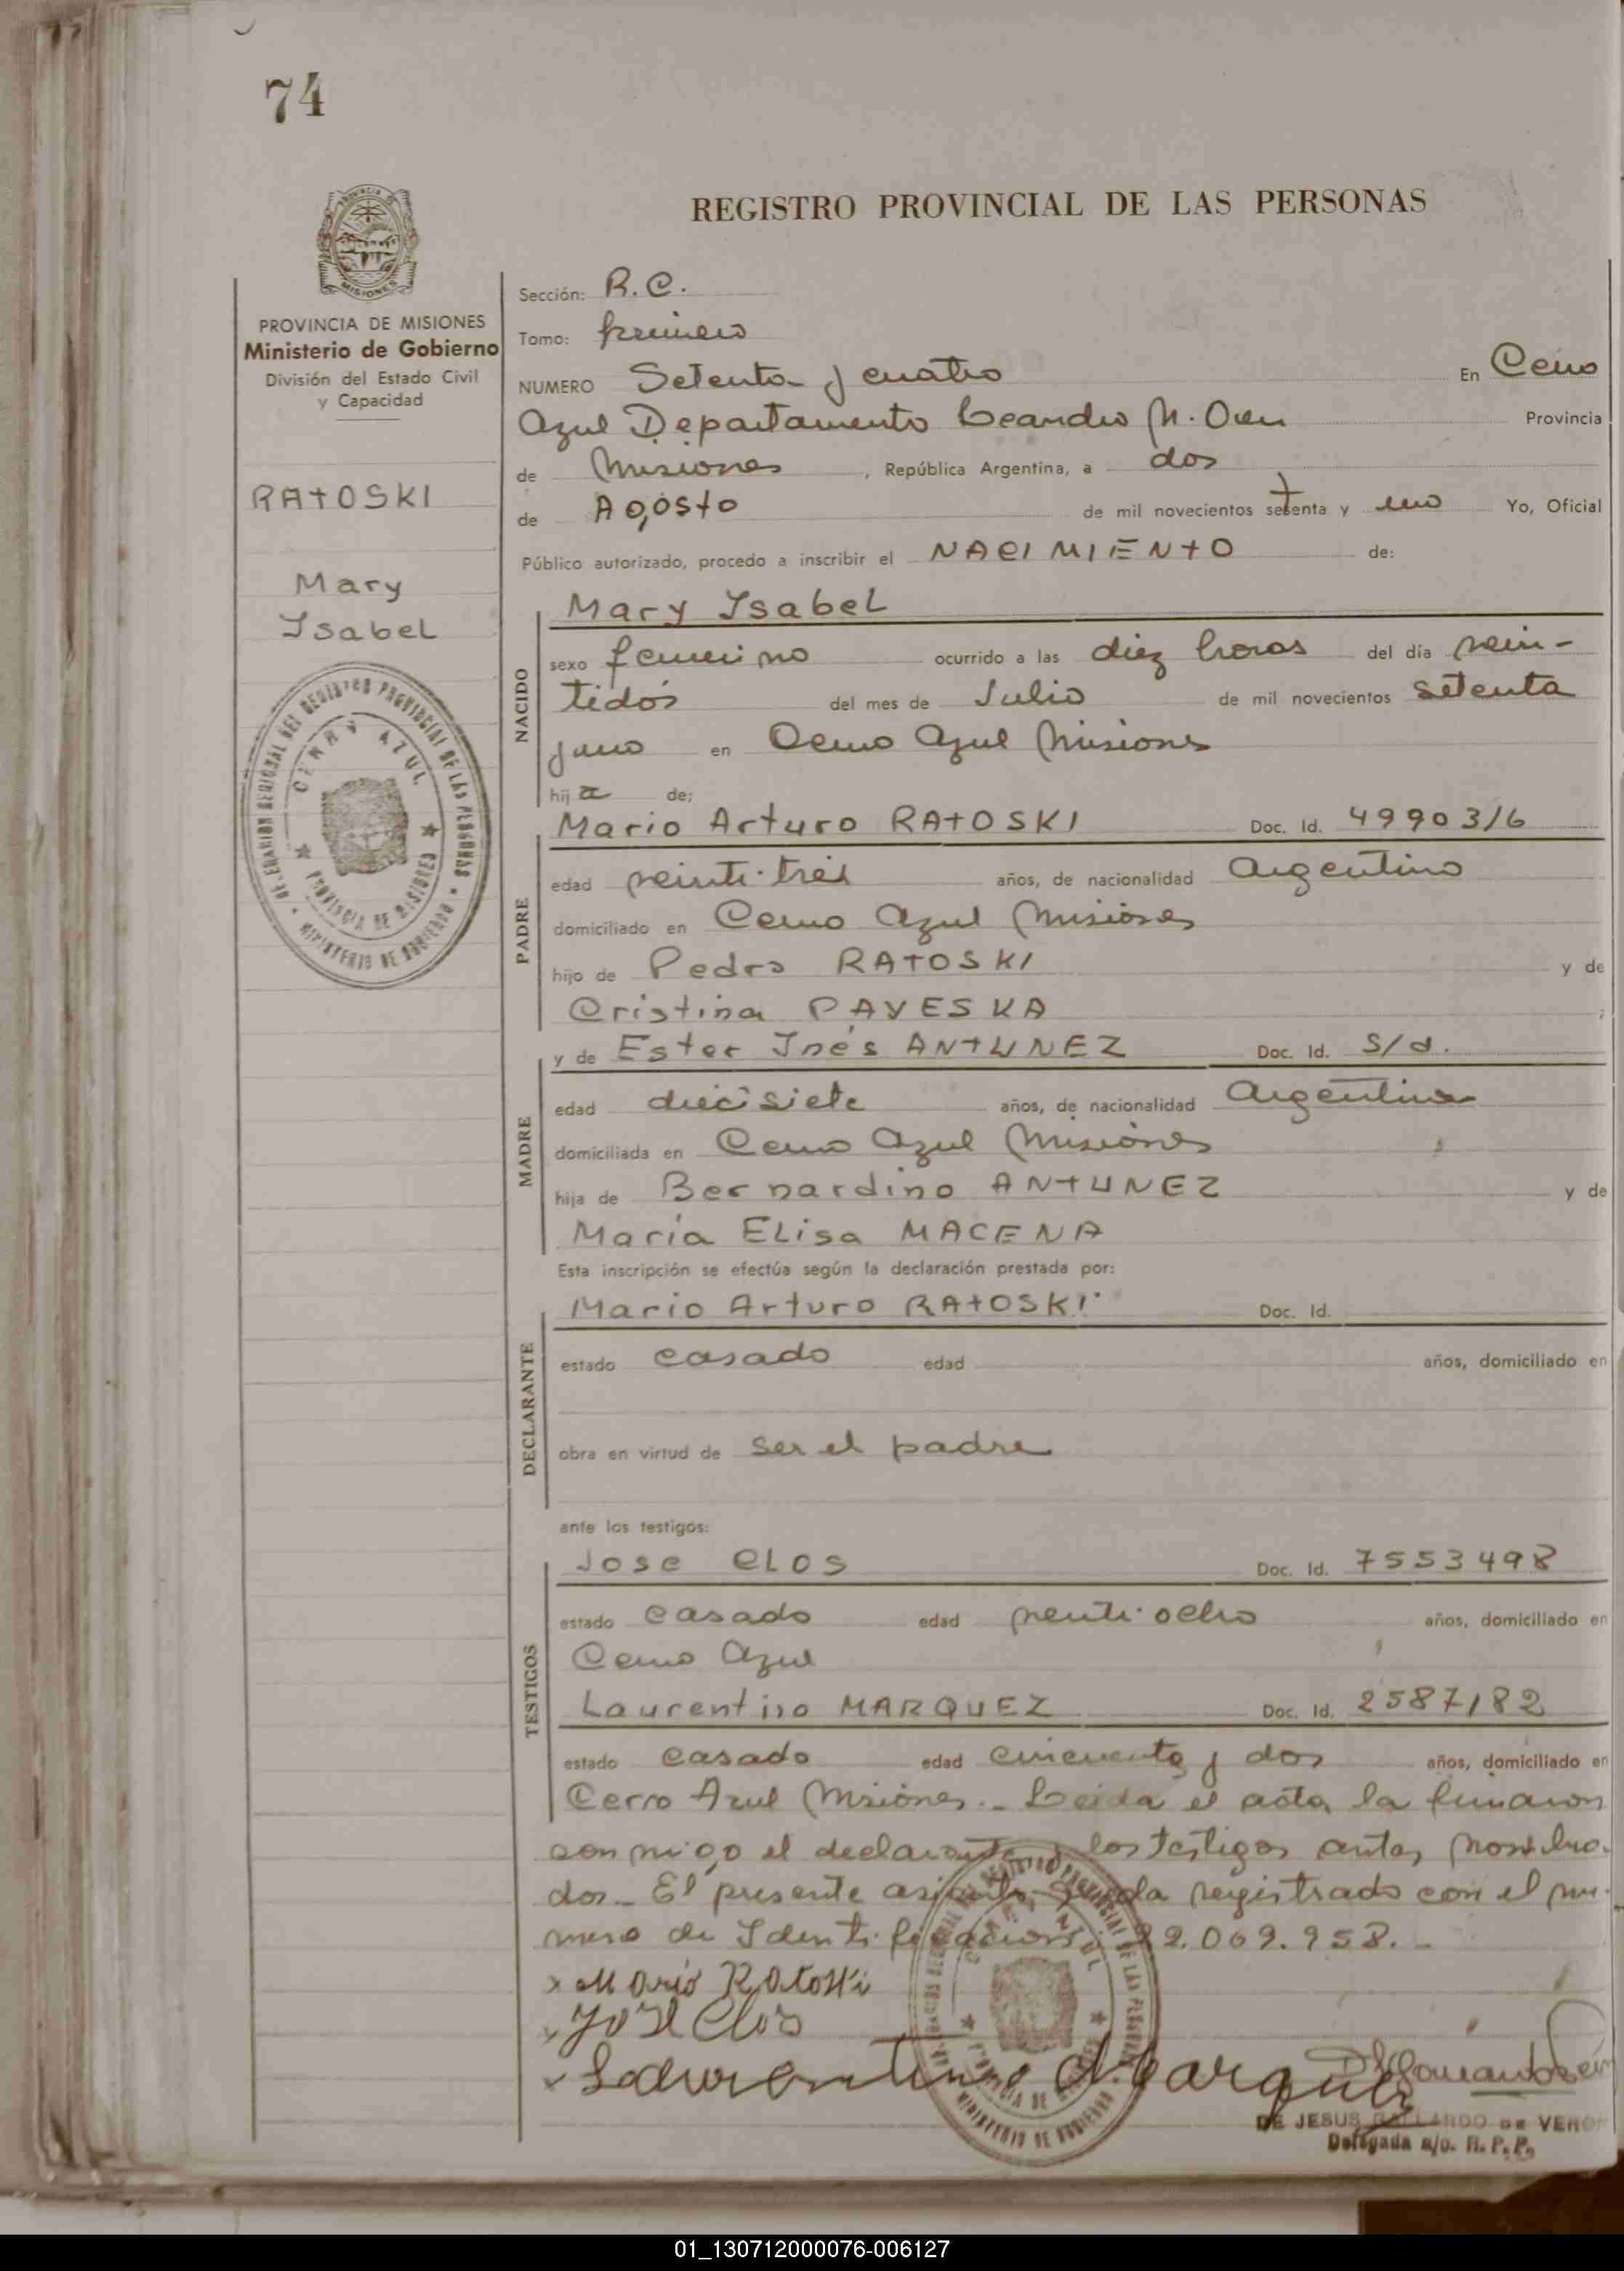 74
REGISTRO PROVINCIAL DE LAS PERSONAS
MISIONES
PROVINCIA DE MISIONES
Ministerio de Gobierno
División del Estado Civil
y Capacidad
RATOSKI
Mary
Isabel
CERRO AZUL
PROVINCIA DE MISIONES
MINISTERIO DE GOBIERNO
Sección: R.C.
Tomo: primero
NUMERO Setenta y cuatro En Cerro
Azul Departamento Leandro N. Alem Provincia
de Misiones, República Argentina, a dos
de Agosto de mil novecientos setenta y uno Yo, Oficial
Público autorizado, procedo a inscribir el NACIMIENTO de:
NACIDO
Mary Isabel
sexo femenino ocurrido a las diez horas del día vein-
tidós del mes de Julio de mil novecientos setenta
y uno en Cerro Azul Misiones
hija de;
PADRE
Mario Arturo RATOSKI Doc. Id. 4990316
edad veinti-tres años, de nacionalidad Argentino
domiciliado en Cerro Azul Misiones
hijo de Pedro RATOSKI y de
Cristina PAVESKA ;
MADRE
y de Ester Inés ANTUNEZ Doc. Id. S/d.
edad diecisiete años, de nacionalidad Argentina
domiciliada en Cerro Azul Misiones
hija de Bernardino ANTUNEZ y de
María Elisa MACENA
Esta inscripción se efectúa según la declaración prestada por:
DECLARANTE
Mario Arturo RATOSKI Doc. Id.
estado casado edad años, domiciliado en
obra en virtud de ser el padre
ante los testigos:
TESTIGOS
Jose CLOS Doc. Id. 7553498
estado casado edad veinti-ocho años, domiciliado en
Cerro Azul
Laurentino MARQUEZ Doc. Id. 2587182
estado casado edad cincuenta y dos años, domiciliado en
Cerro Azul Misiones.- Leida el acta, la firmaron
conmigo el declarante y los testigos antes nombra-
dos.- El presente asiento queda registrado con el nu-
mero de Identificacion: 22.069.958.-
x Mario Ratoski
x José Clos
x Laurentino Marquez
DE JESUS GALLARDO DE VERON
Delegada a/c. R. P. P.
01_130712000076-006127